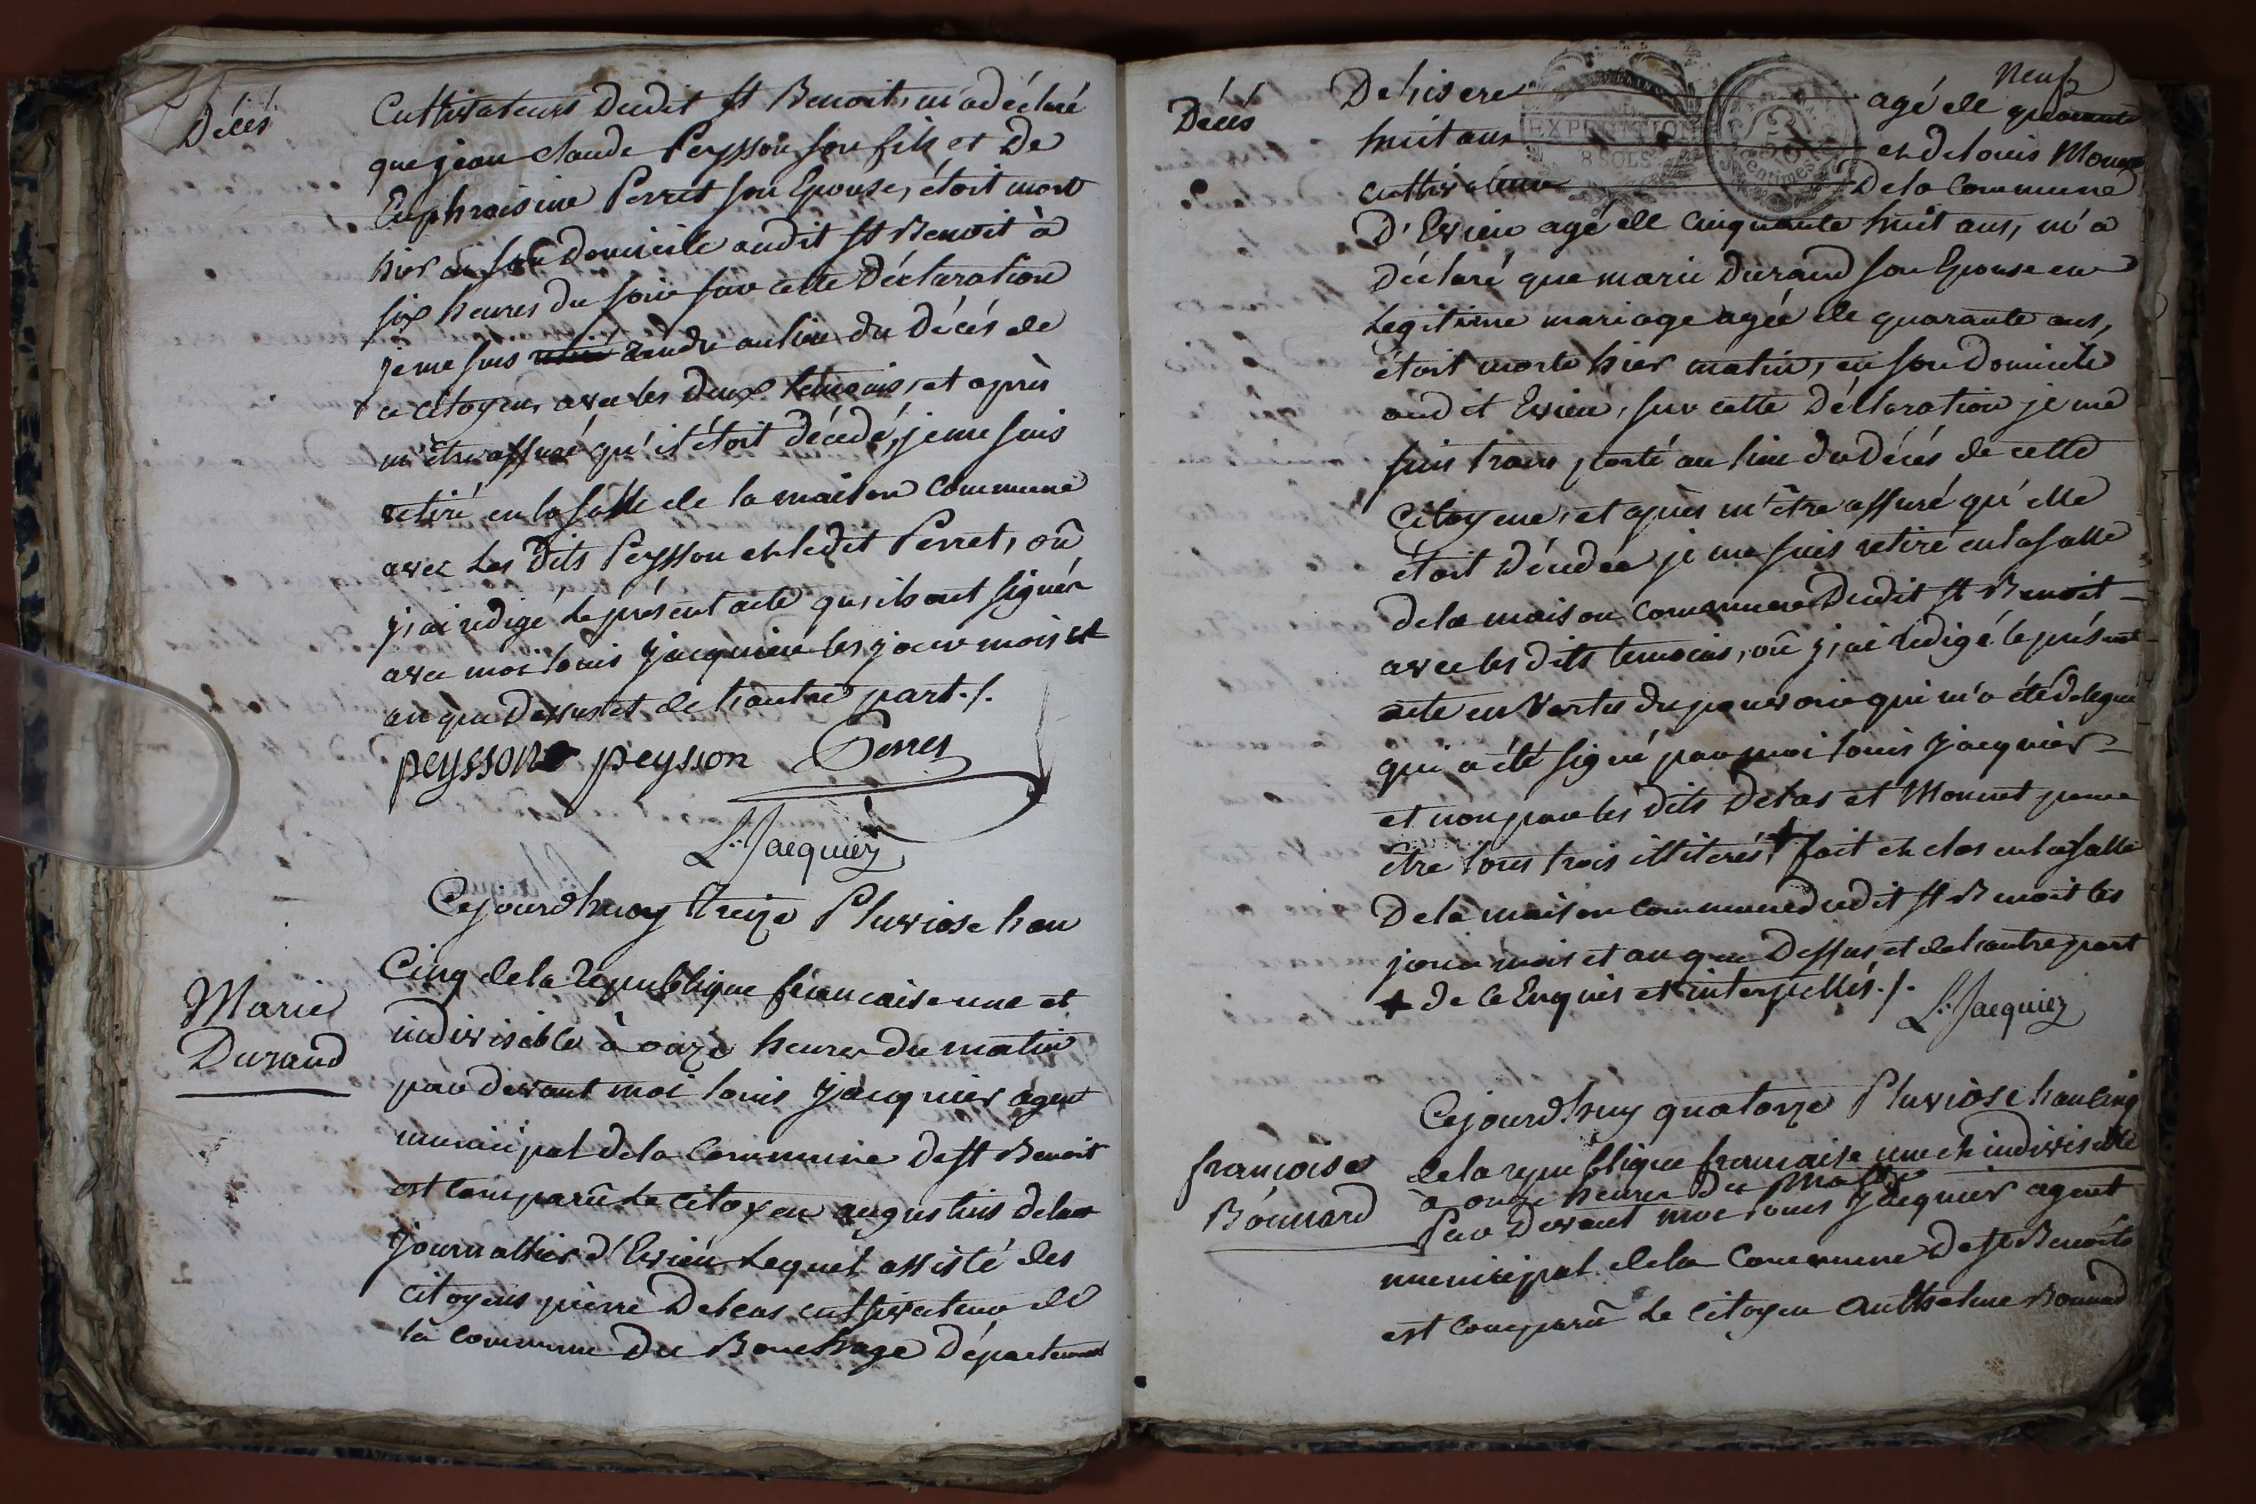 Décés
Cultivateurs dudit St Benoit, m'a déclaré
que jean claude Peysson son fils et De
Euphroisine Perret son Epouse, étoit mort
hier en son Domicile audit St Benoit à
six heures du soir sur cette Déclaration
je me suis rendu au lieu du Décés de
ce Citoyen, avec les deux temoins, et après
m'être assuré qu'il étoit décédé, je me suis
retiré en la salle de la maison commune
avec les dits Peysson et ledit Perret, où
j'ai redigé le présent acte qu'ils ont signés
avec moi louis Jacquier les jour mois et
an que Dessus et de l'autre part./.
peysson peysson Perret
L. Jacquier
Cejourd'huoy treize Pluviose l'an
Marie
Durand
Cinq de la république francaise une et
indivisible à onze heures du matin
par devant moi louis Jacquier agent
municipal de la Commune de St Benoit
est comparû Le citoyen augustins delas
journallier d'Evieu Lequel assisté des
Citoyens pierre Delas cultivateur de
la commune Du Bouchage Département
Décés
De lisere agé de quarante neuf
huit ans et de louis Monnet
cultivateur De la Commune
D'Evieu agé de cinquante huit ans, m'a
Déclaré que marie Durand son Epouse en
Legitime mariage agée de quarante ans,
étoit morte hier matin, en son Domicile
audit Evieu, sur cette Déclaration je me
suis transporté au lieu du Décés de cette
Citoyene, et après m'être assuré qu'elle
étoit Décédée je me suis retiré en la salle
de la maison commune Dudit St Benoit
avec les dits temoins, où j'ai redigé le présent
acte en Vertu du pouvoir qui m'a été delegué
qui a été signé par moi louis Jacquier
et non par les dits Delas et Monnet pour
être tous trois illiterés + fait et clos en la salle
De la maison commune dudit St Benoit les
jour mois et an que Dessus et de l'autre part
+ de ce Enquis et interpellés./.
L. Jacquier
Cejourd'huy quatorze Pluviose l'an Cinq
françoise
Bonnard
de la republique francaise une et indivisible
à onze heures du Matin
Par Devant moi louis Jacquier agent
municipal de la Commune De St Benoit
est comparû Le Citoyen Anthelme Bonnard
EXPEDITION
8 SOLS
50
Centimes